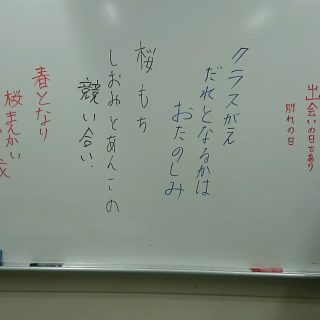 出会いの日であり
別れの日
クラスがえ
だれとなるかは
おたのしみ
桜もち
しおみとあんこの
競い合い.
春となり
桜まんかい